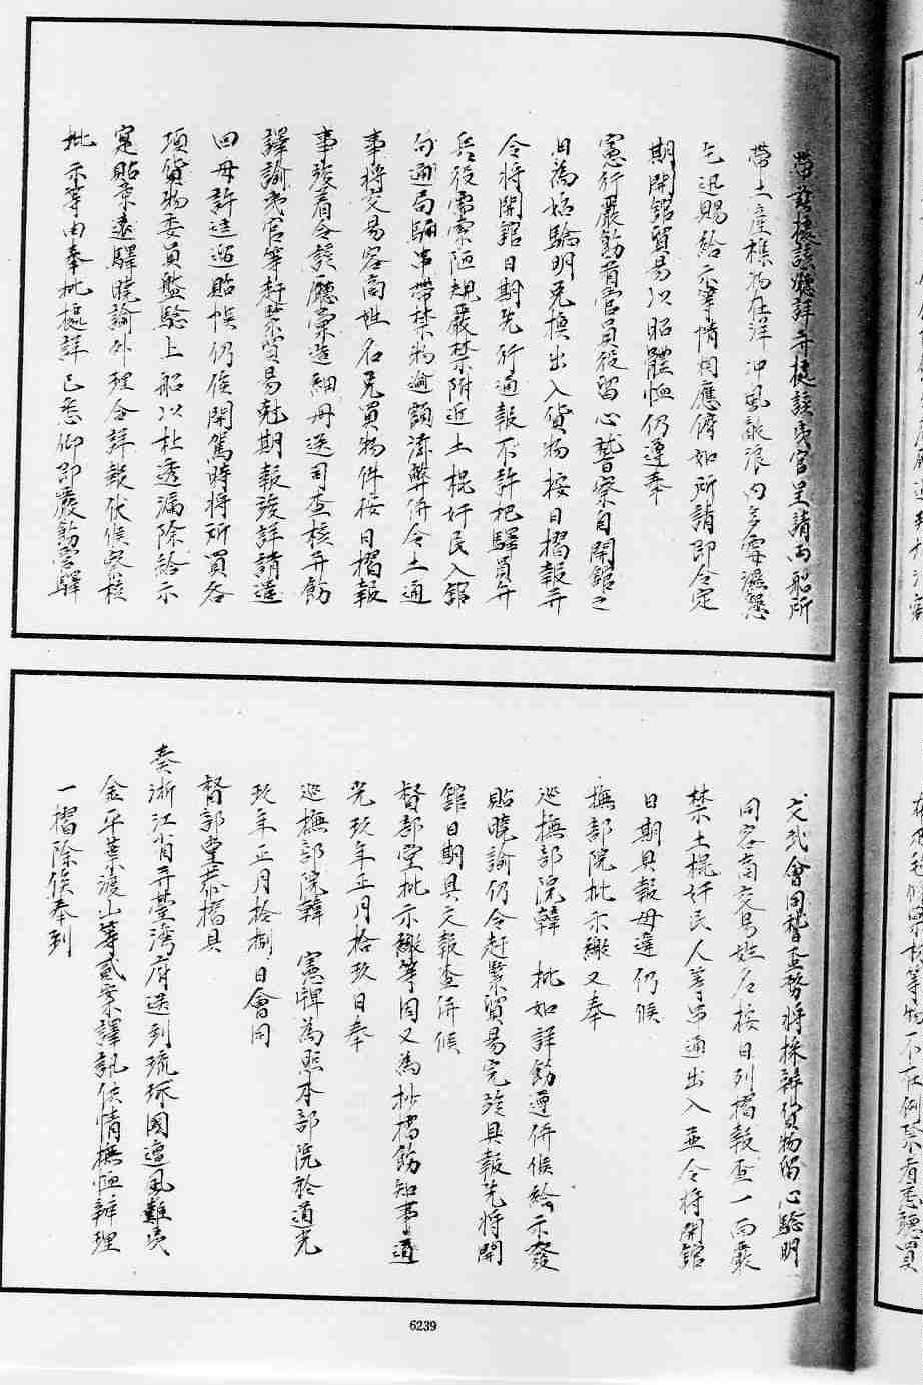 帶前來據該廳詳弁據該夷官呈請兩船所
帶土產樵物在洋冲風敲浪內多霉濕懇
乞迅賜給示等情相應俯如所請即令定
期開舘貿易以昭體恤仍遵奉
憲行嚴飭看官員役留心稽察自開舘之
日為始驗明兌換出入貨物按日摺報弁
令將開舘日期先行通報不許把驛員弁
兵役需索陋規嚴禁附近土棍奸民入舘
勾通局騙串帶禁物逾額滋弊併令土通
事將交易客商姓名兌買物件按日摺報
事竣着令該廳彙造細冊送司查核弁飭
譯諭夷官等赶緊貿易尅期報竣詳請遣
回毋許逗遛貽悞仍俟開駕時將所買各
項貨物委員盤驗上船以杜透漏除給示
寔貼柔遠驛曉諭外理合詳報伏候察核
批示等由奉批據詳已悉仰即嚴飭管驛
文武會同稽查務將採辦貨物留心驗明
同客商交易姓名按日列摺報查一面嚴
禁土棍奸民人等串通出入並令將開舘
日期具報毋違仍候
撫部院批示繳又奉
巡撫部院韓　批如詳飭遵併候給示發
貼曉諭仍令赶緊貿易完竣具報先將開
舘日期具文報查併候
督部堂批示繳等因又為抄摺飭知事道
光玖年正月拾玖日奉
巡撫部院韓　憲牌為照本部院於道光
玖年正月拾捌日會同
督部堂孫摺具
奏浙江省弁臺灣府送到琉球國遭風難夷
金平葉渡山等貳案譯訊供情撫恤辦理
一摺除俟奉到
6239